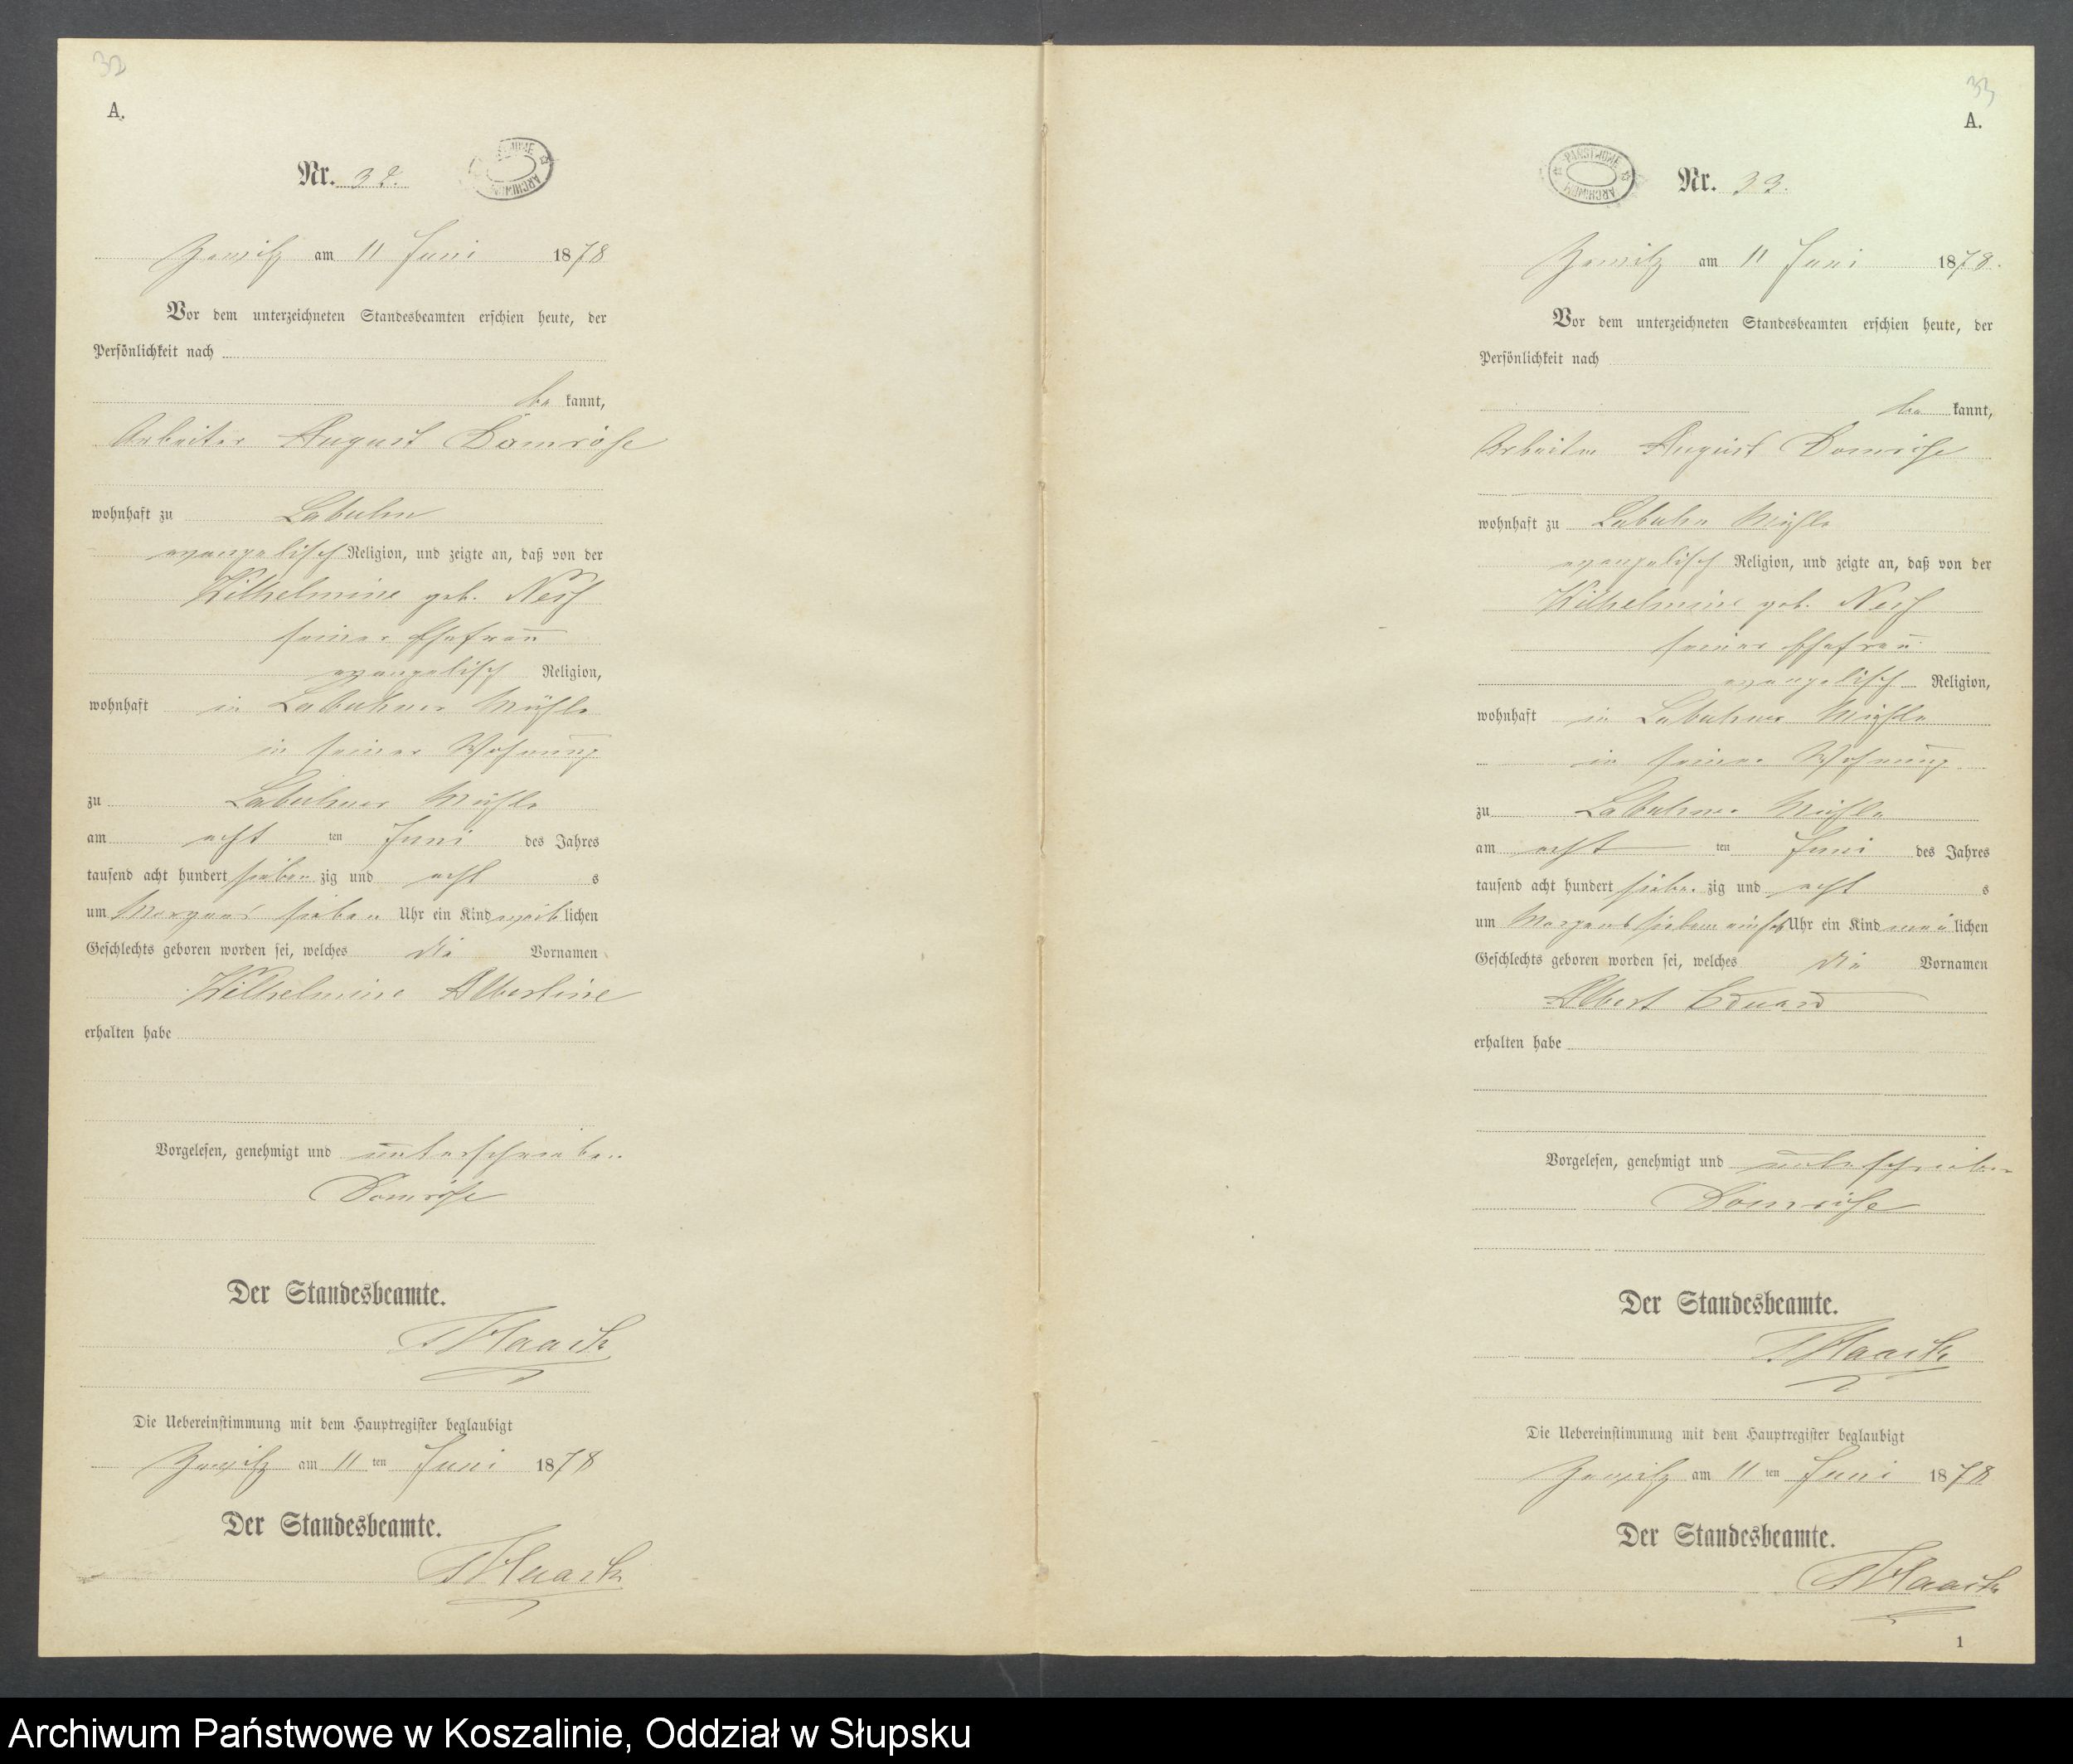 32
A.
Nr. 32.
PAŃSTWOWE ARCHIWUM
Zewitz am 11 Juni 1878
Vor dem unterzeichneten Standesbeamten erschien heute, der
Persönlichkeit nach
be kannt,
Arbeiter August Domröse
wohnhaft zu Labuhn
evangelisch Religion, und zeigte an, daß von der
Wilhelmine geb.
seiner Ehefrau
evangelisch Religion,
wohnhaft in Labuhner Mühle
in seiner Wohnung
zu Labuhner Mühle
am acht ten Juni des Jahres
tausend acht hundert sieben zig und acht s
um Morgens sieben Uhr ein Kind weib lichen
Geschlechts geboren worden sei, welches die Vornamen
Wilhelmine Albertine
erhalten habe
Vorgelesen, genehmigt und unterschrieben
Domröse
Der Standesbeamte.
Haack
Die Uebereinstimmung mit dem Hauptregister beglaubigt
Zewitz am 11 ten Juni 1878
Der Standesbeamte.
Haack
33
A.
PAŃSTWOWE ARCHIWUM
Nr. 33.
Zewitz am 11 Juni 1878.
Vor dem unterzeichneten Standesbeamten erschien heute, der
Persönlichkeit nach
be kannt,
Arbeiter August Domröse
wohnhaft zu Labuhn Mühle
evangelisch Religion, und zeigte an, daß von der
Wilhelmine geb.
seiner Ehefrau
evangelisch Religion,
wohnhaft in Labuhner Mühle
in seiner Wohnung
zu Labuhner Mühle
am acht ten Juni des Jahres
tausend acht hundert sieben zig und acht s
um Morgens sieben Uhr ein Kind män lichen
Geschlechts geboren worden sei, welches die Vornamen
Albert Eduard
erhalten habe
Vorgelesen, genehmigt und unterschrieben
Domröse
Der Standesbeamte.
Haack
Die Uebereinstimmung mit dem Hauptregister beglaubigt
Zewitz am 11 ten Juni 1878
Der Standesbeamte.
Haack
1
Archiwum Państwowe w Koszalinie, Oddział w Słupsku